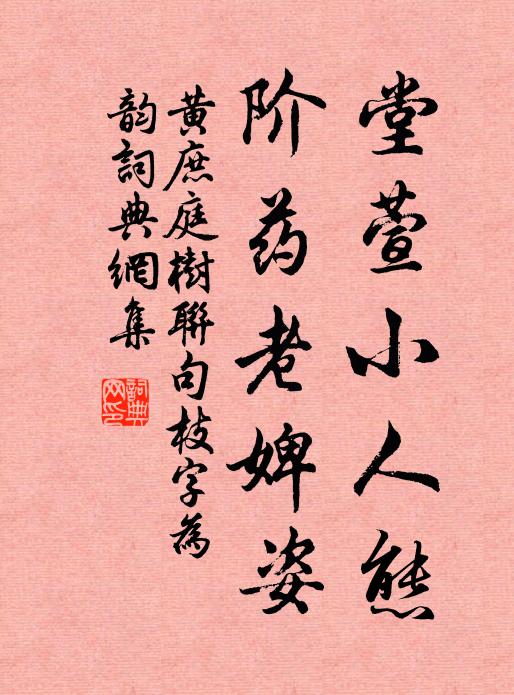 堂萱小人態
阶药老婢姿
黄庶庭樹聯句枝字為
韵詞典網集
詞典网印